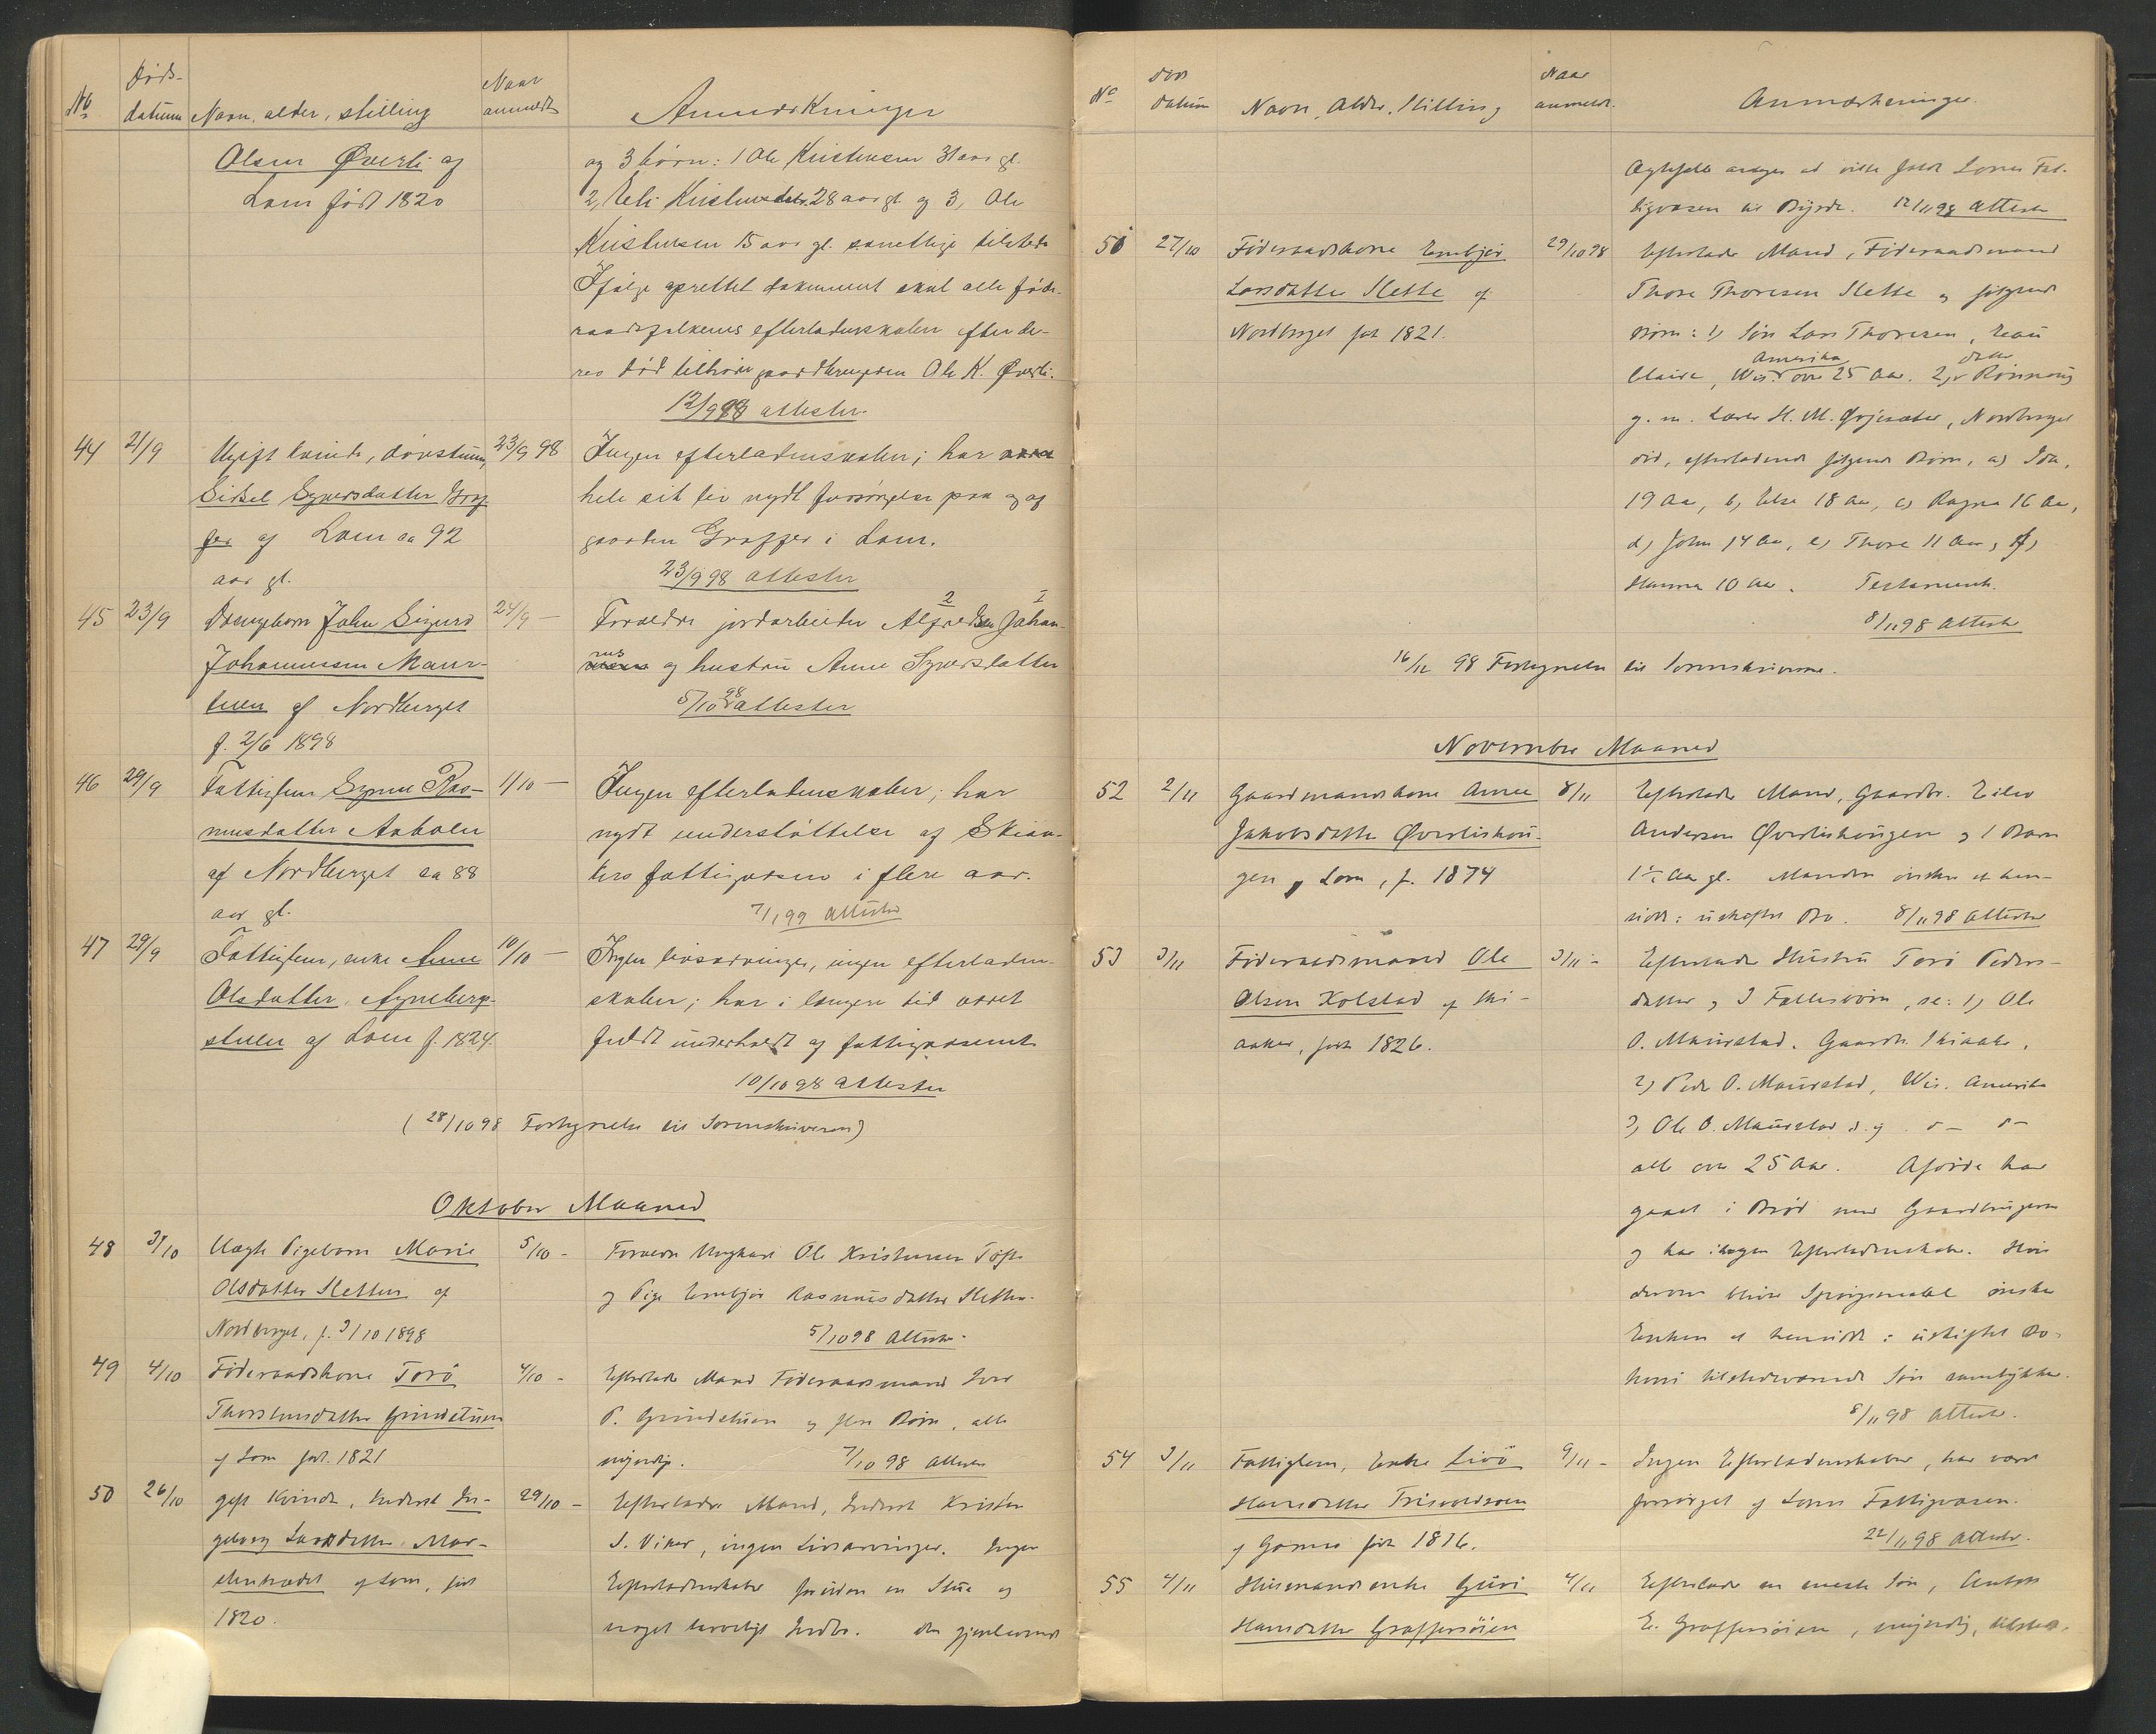 No Døds-datum Navn, alder, stilling Naar anmeldt Anmerkninger
Olsen Øverli af og 3 børn: 1 Ole Kristensen 31 aar gl.
Lom født 1820 2, Eli Kristensdtr. 28 aar gl og 3, Ole
Kristensen 15 aar gl. samtlige tilstede
Ifølge oprettet dokument skal alle føde-
raadsfolkenes efterladenskaber efter de-
res død tilhøre gaardbrugeren Ole K. Øverli.
12/9 98 attester.
44 21/9 Ugift kvinde, døvstum, 23/9 98 Ingen efterladenskaber; har
Sidsel Syversdatter Graf- hele sit liv nydt forsørgelse paa og af
fer af Lom ca 92 gaarden Graffer i Lom.
aar gl. 23/9 98 attester
45 23/9 Drengebarn John Sigurd 24/9 – Forældre jordarbeider Alfredsen 2 Johan- 1
Johannessen Maur- nes og hustru Anne Syversdatter
tuen af Nordberget 5/10 98 attester
f. 2/6 1898
46 29/9 Fattiglem Synne Ras- 1/10 – Ingen efterladenskaber; har
musdatter Aabolu nydt understøttelse af Skiak-
af Nordberget ca 88 kers fattigvæsen i flere aar.
aar gl. 7/1 99 attester
47 29/9 Fattiglem, enke Anne 10/10 – Ingen livsarvinger, ingen efterladen-
Olsdatter Ayneberg- skaber; har i længere tid været
stuen af Lom f. 1824. fuldt underholdt af fattigvæsenet
10/10 98 attester
(28/10 98 Fortegnelse til Sorenskriveren)
Oktober Maaned
48 3/10 Uægte Pigebarn Marie 5/10 – Forældre Ungkarl Ole Kristensen Tofte
Olsdatter Sletten af og Pige Embjør Rasmusdatter Sletten.
Nordberget, f. 3/10 1898 5/10 98 Attester.
49 4/10 Føderaadskone Torø 4/10 – Efterlader Mand Føderaadsmand
Thorstensdatter Grindstuen P. Grindstuen og flere Børn, alle
af Lom født 1821 myndige. 7/10 98 Attester
50 26/10 gift Kvinde, Inderst In- 29/10 – Efterlader Mand, Inderst Kristen
geborg Larsdatter Mar- S. Viker, ingen Livsarvinger. Ingen
af Lom, født Efterladenskaber foruden en Stue og
1820. noget Indbo. Den gjenlevende
No Døds datum Navn, Alder, Stilling Naar anmeldt. Anmærkninger.
Ægtefælle antages at ville falde Loms Fat-
tigvæsen til Byrde. 12/11 98 Attester
50 27/10 Føderaadskone Embjør 29/10 98 Efterlader Mand, Føderaadsmand
Larsdatter Slette af Thore Thoresen Slette og følgende
Nordberget født 1821. Børn: 1) Søn Lars Thoresen, Eau
Claire, Wis. Amerika over 25 Aar. 2, datter Rønnaug
g. m. Lærer H. M. Gjeisæter, Nordberget
død, efterladende følgende Børn, a) Ida,
19 Aar, b, Else 18 Aar, c) Ragna 16 Aar,
d) John 14 Aar, e) Thore 11 Aar, f)
Hanna 10 Aar. Testamente.
8/11 98 Attester
16/12 98 Fortegnelse til Sorenskriveren.
November Maaned
52 2/11 Gaardmandskone Anne 8/11 Efterlader Mand, Gaardbr. Eilev
Jakobsdatter Øverlishau- Andersen Øverlishaugen og 1 Barn
gen af Lom, f. 1874 1 1/2 Aar gl. Manden ønsker at hen-
sidde i uskiftet Bo. 8/11 98 Attester
53 3/11 Føderaadsmand Ole 3/11 – Efterlader Hustru Torø Peders-
Olsen Kolstad af Ski- datter og 3 Fællesbørn, se: 1) Ole
aaker, født 1826. O. Maurstad, Gaardbr. Skiaaker,
2) Peder O. Maurstad, Wis. Amerika
3) Ole O. Maurstad d. y. do do
alle over 25 Aar. Afdøde har
gaaet i Brød med Gaardbrugeren
og har ingen Efterladenskaber. Hvis
derom bliver Spørgsmaal ønsker
Enken at hensidde i uskiftet Bo,
hvori tilstedeværende Søn samtykker.
8/11 98 Attester.
54 3/11 Fattiglem, Enke Livø 9/11 – Ingen Efterladenskaber, har været
Hansdatter forsørget af Loms Fattigvæsen.
af født 1816. 22/11 98 Attester.
55 4/11 Husmandsenke Guri 4/11 Efterlader en eneste Søn,
Hansdatter Graffersøien E. Graffersøien, myndig, tilstede.